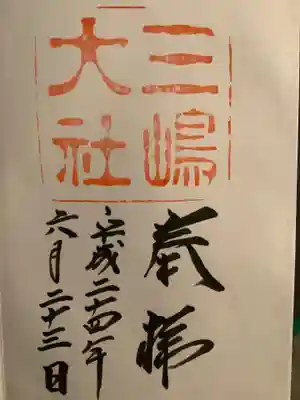 三嶋
大社
奉拝
平成二十四年
六月二十三日